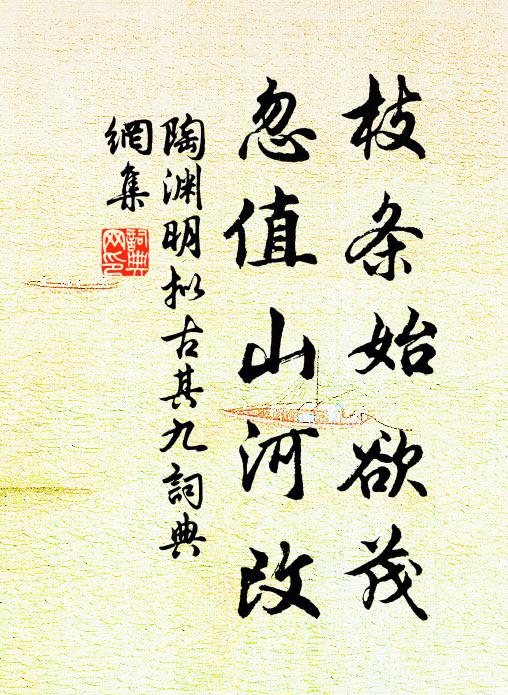 枝条始欲茂
忽值山河改
陶渊明拟古其九詞典
網集
詞典
网印